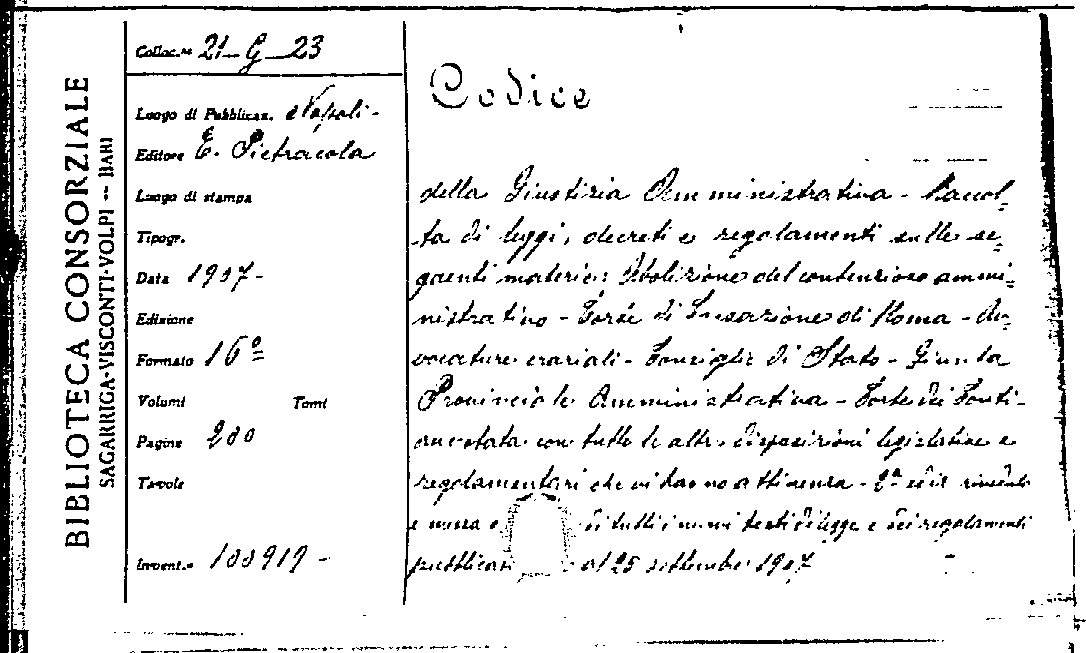 BIBLIOTECA CONSORZIALE
SAGARRIGA-VISCONTI-VOLPI -- BARI
Colloc.ne 21-G-23
Luogo di Pubblicaz. Napoli -
Editore E. Pietracola
Luogo di stampa
Tipogr.
Data 1907 -
Edizione
Formato 16º
Volumi Tomi
Pagine 280
Tavole
Invent.e 100919 -
Codice
della Giustizia Amministrativa - Raccol=
ta di leggi, decreti e regolamenti sulle se=
guenti materie: Abolizione del contenzioso ammi=
nistrativo - Corte di Cassazione di Roma - Av=
vocature erariali - Consiglio di Stato - Giunta
Provinciale Amministrativa - Corte dei Conti -
annotata con tutte le altre disposizioni legislative e
regolamentari che vi hanno attinenza - 2ª ediz riveduta
e messa di tutti i nuovi testi di legge e dei regolamenti
al 25 settembre 1907